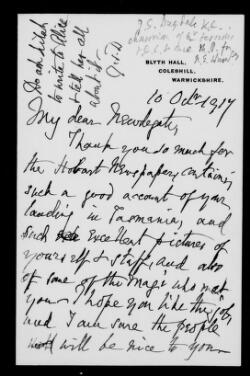 Do ask Dilah
to write to Elsie
& tell her all
about it
J.S.D
J.S. Dugdale K.C.
BLYTH HALL,
COLESHILL,
WARWICKSHIRE.
10 Octr 1917
My dear Newdegate,
Thank you so much for
the Hobart Newspaper, containing
such a good account of your
landing in Tasmania, and
such excellent pictures of
yourself & staff, and also
of some of the "mags" who met
you. I hope you like the "job"
and I am sure the people
will be nice to you